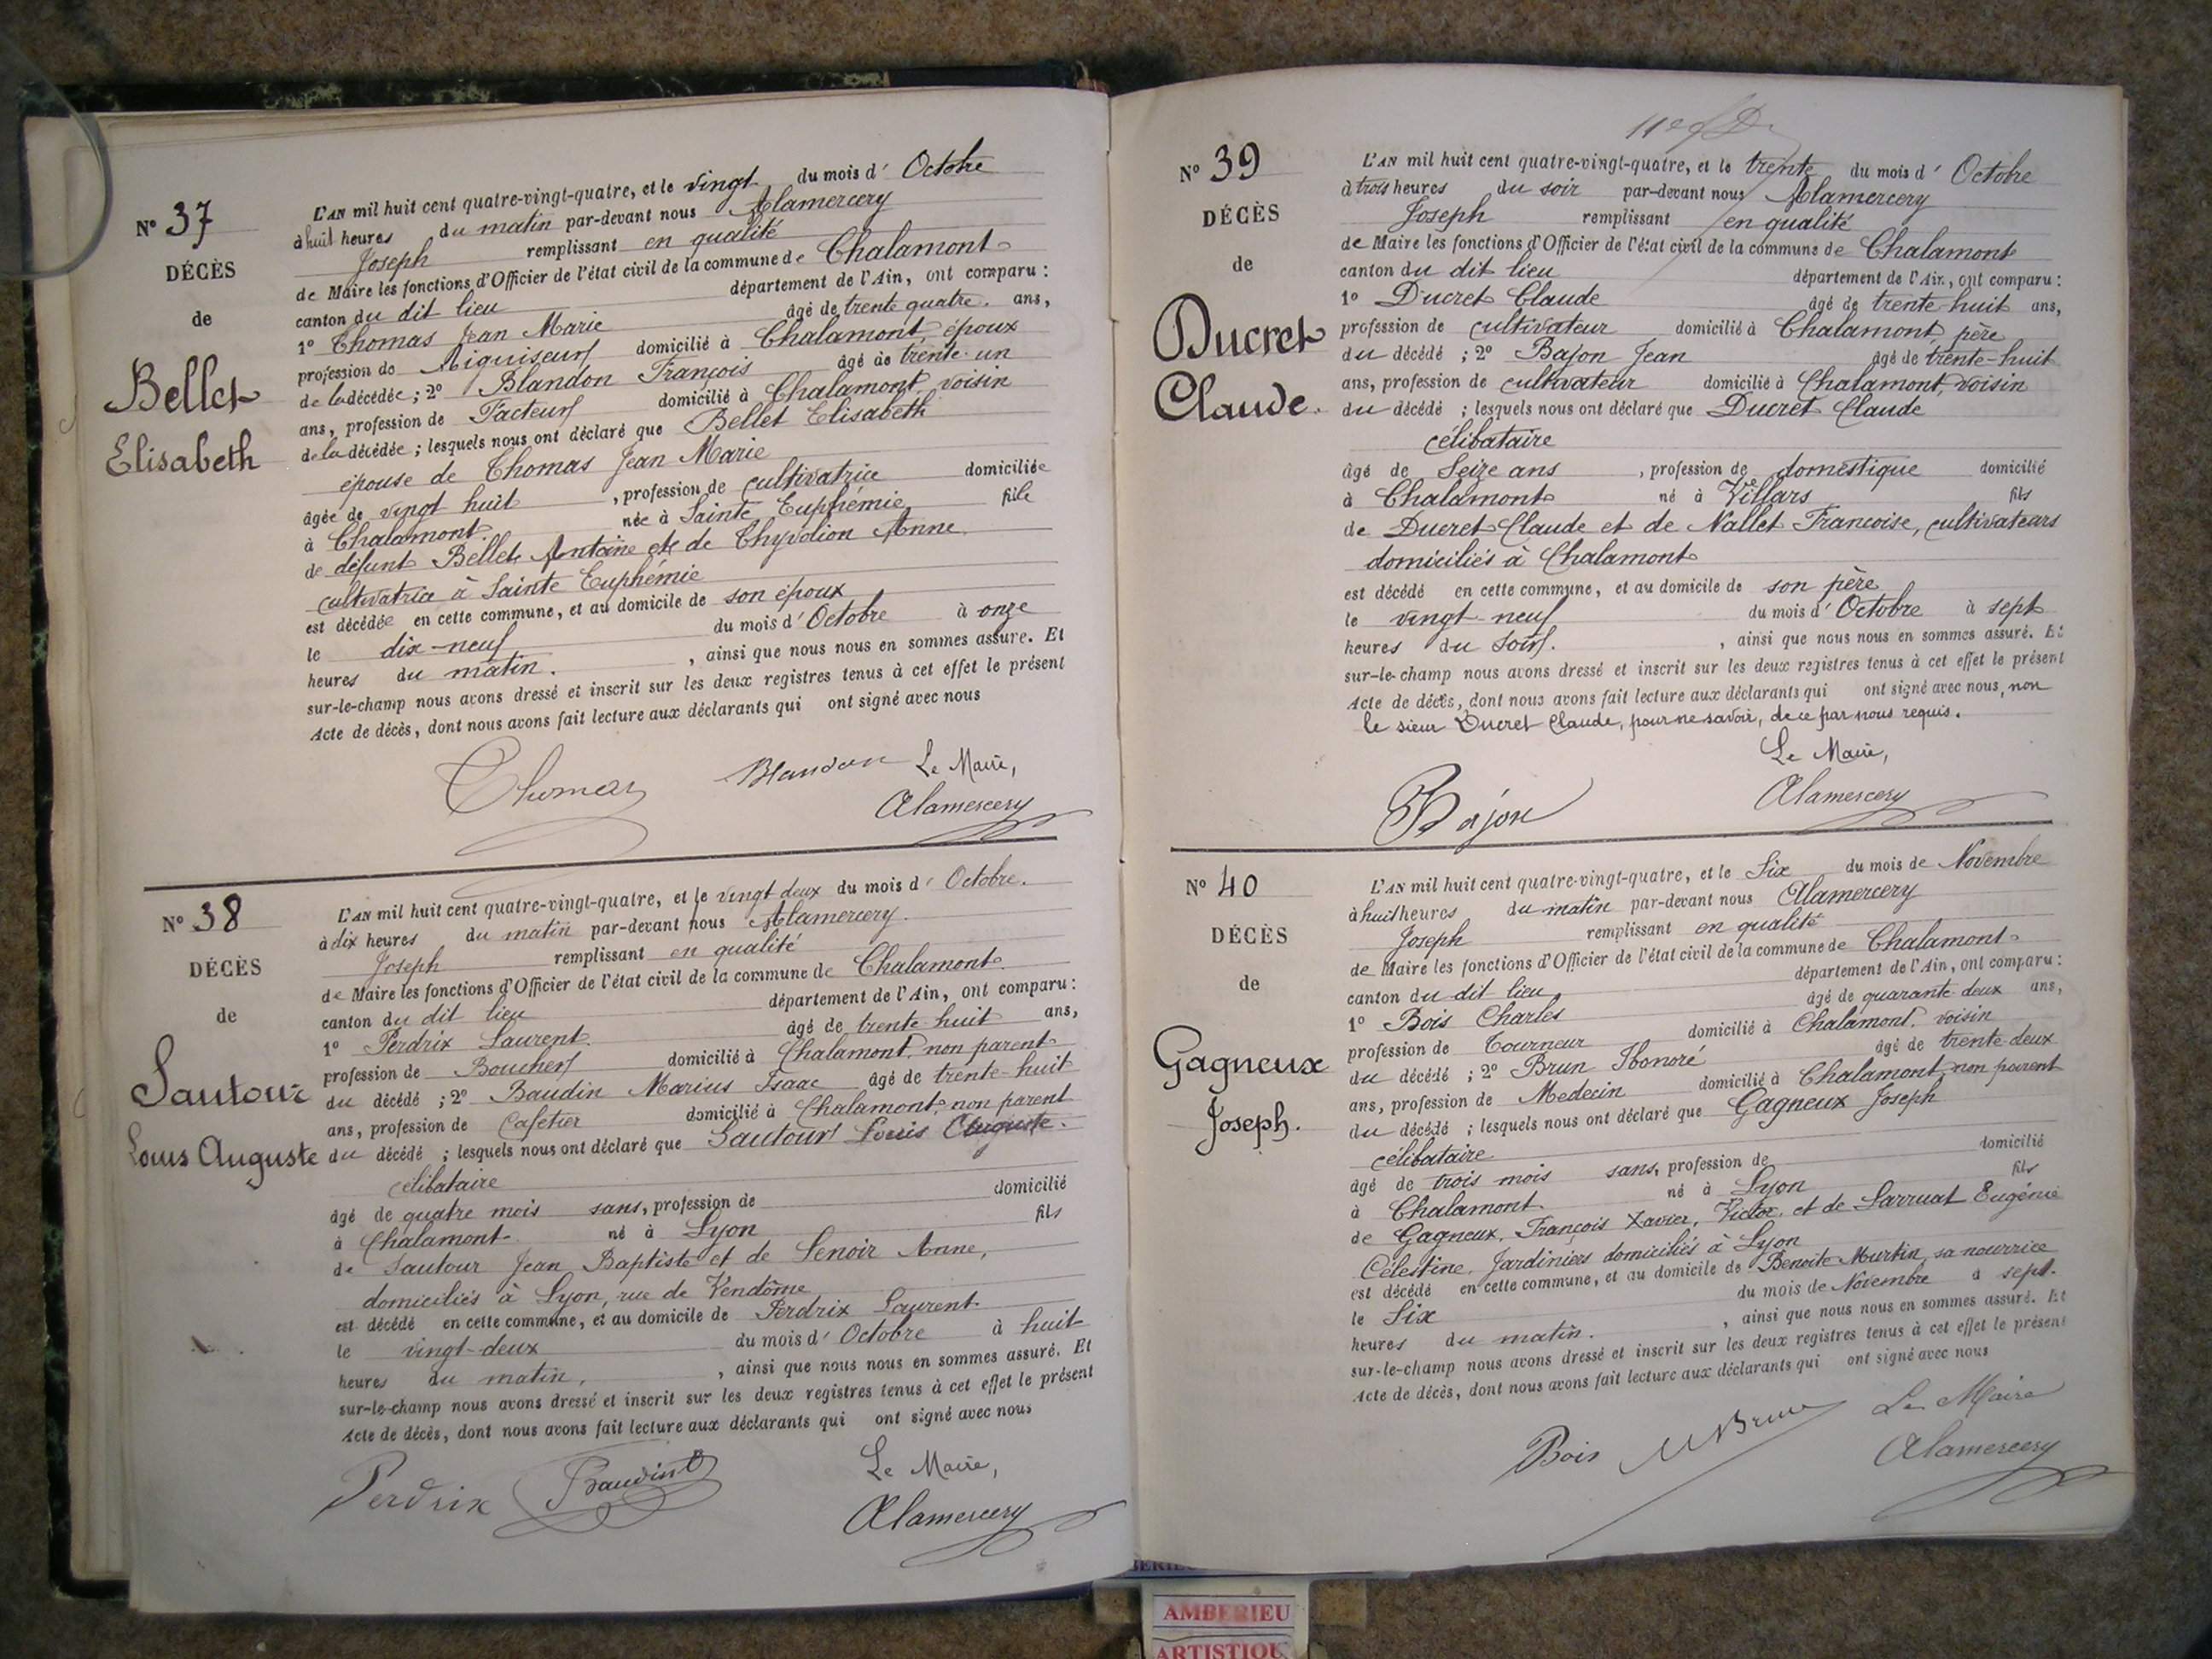 N° 37
DÉCÈS
de
Bellet
Elisabeth
L'AN mil huit cent quatre-vingt-quatre, et le vingt du mois d' Octobre
à huit heures du matin par-devant nous Alamercery
Joseph remplissant en qualité
de Maire les fonctions d'Officier de l'état civil de la commune de Chalamont
canton du dit lieu département de l'Ain, ont comparu :
1° Thomas Jean Marie âgé de trente quatre ans,
profession de Aiguiseur domicilié à Chalamont, époux
de la décédée ; 2° Blandon François âgé de trente un
ans, profession de Facteur domicilié à Chalamont, voisin
de la décédée ; lesquels nous ont déclaré que Bellet Elisabeth
épouse de Thomas Jean Marie
âgée de vingt huit , profession de cultivatrice domiciliée
à Chalamont. née à Sainte Euphémie fille
de défunt Bellet Antoine et de Thyvolion Anne
cultivatrice à Sainte Euphémie
est décédée en cette commune, et au domicile de son époux
le dix-neuf du mois d' Octobre à onze
heures du matin. , ainsi que nous nous en sommes assuré. Et
sur-le-champ nous avons dressé et inscrit sur les deux registres tenus à cet effet le présent
Acte de décès, dont nous avons fait lecture aux déclarants qui ont signé avec nous
Thomas Blandon Le Maire,
Alamercery
N° 38
DÉCÈS
de
Sautour
Louis Auguste
L'AN mil huit cent quatre-vingt-quatre, et le vingt deux du mois d' Octobre.
à dix heures du matin par-devant nous Alamercery.
Joseph remplissant en qualité
de Maire les fonctions d'Officier de l'état civil de la commune de Chalamont
canton du dit lieu département de l'Ain, ont comparu :
1° Perdrix Laurent. âgé de trente huit ans,
profession de Boucher domicilié à Chalamont, non parent
du décédé ; 2° Baudin Marius Isaac âgé de trente-huit
ans, profession de Cafetier domicilié à Chalamont, non parent
du décédé ; lesquels nous ont déclaré que Sautour Louis Auguste.
célibataire
âgé de quatre mois sans, profession de domicilié
à Chalamont né à Lyon fils
de Sautour Jean Baptiste et de Lenoir Anne,
domiciliés à Lyon, rue de Vendôme
est décédé en cette commune, et au domicile de Perdrix Laurent
le vingt-deux du mois d' Octobre à huit
heures du matin. , ainsi que nous nous en sommes assuré. Et
sur-le-champ nous avons dressé et inscrit sur les deux registres tenus à cet effet le présent
Acte de décès, dont nous avons fait lecture aux déclarants qui ont signé avec nous
Perdrix Baudin Le Maire,
Alamercery
N° 39
DÉCÈS
de
Ducret
Claude.
L'AN mil huit cent quatre-vingt-quatre, et le trente du mois d' Octobre
à trois heures du soir par-devant nous Alamercery
Joseph remplissant en qualité
de Maire les fonctions d'Officier de l'état civil de la commune de Chalamont
canton du dit lieu département de l'Ain, ont comparu :
1° Ducret Claude âgé de trente huit ans,
profession de cultivateur domicilié à Chalamont, père
du décédé ; 2° Bajon Jean âgé de trente-huit
ans, profession de cultivateur domicilié à Chalamont, voisin
du décédé ; lesquels nous ont déclaré que Ducret Claude
célibataire
âgé de Seize ans , profession de domestique domicilié
à Chalamont né à Villars fils
de Ducret Claude et de Nallet Francoise, cultivateurs
domiciliés à Chalamont
est décédé en cette commune, et au domicile de son père
le vingt-neuf du mois d' Octobre à sept
heures du Soir. , ainsi que nous nous en sommes assuré. Et
sur-le-champ nous avons dressé et inscrit sur les deux registres tenus à cet effet le présent
Acte de décès, dont nous avons fait lecture aux déclarants qui ont signé avec nous, non
le sieur Ducret Claude, pour ne savoir, de ce par nous requis.
Le Maire,
Bajon Alamercery
N° 40
DÉCÈS
de
Gagneux
Joseph.
L'AN mil huit cent quatre-vingt-quatre, et le Six du mois de Novembre
à huit heures du matin par-devant nous Alamercery
Joseph remplissant en qualité
de Maire les fonctions d'Officier de l'état civil de la commune de Chalamont
canton du dit lieu département de l'Ain, ont comparu :
1° Bois Charles âgé de quarante deux ans,
profession de Tourneur domicilié à Chalamont, voisin
du décédé ; 2° Brun Honoré âgé de trente-deux
ans, profession de Medecin domicilié à Chalamont, non parent
du décédé ; lesquels nous ont déclaré que Gagneux Joseph
célibataire
âgé de trois mois sans, profession de domicilié
à Chalamont né à Lyon fils
de Gagneux, François Xavier, Victor, et de Sarruat Eugénie
Célestine, Jardiniers domiciliés à Lyon
est décédé en cette commune, et au domicile de Benoite Murtin sa nourrice
le Six du mois de Novembre à sept
heures du matin. , ainsi que nous nous en sommes assuré. Et
sur-le-champ nous avons dressé et inscrit sur les deux registres tenus à cet effet le présent
Acte de décès, dont nous avons fait lecture aux déclarants qui ont signé avec nous
Bois Brun Le Maire
Alamercery
AMBERIEU
ARTISTIQU